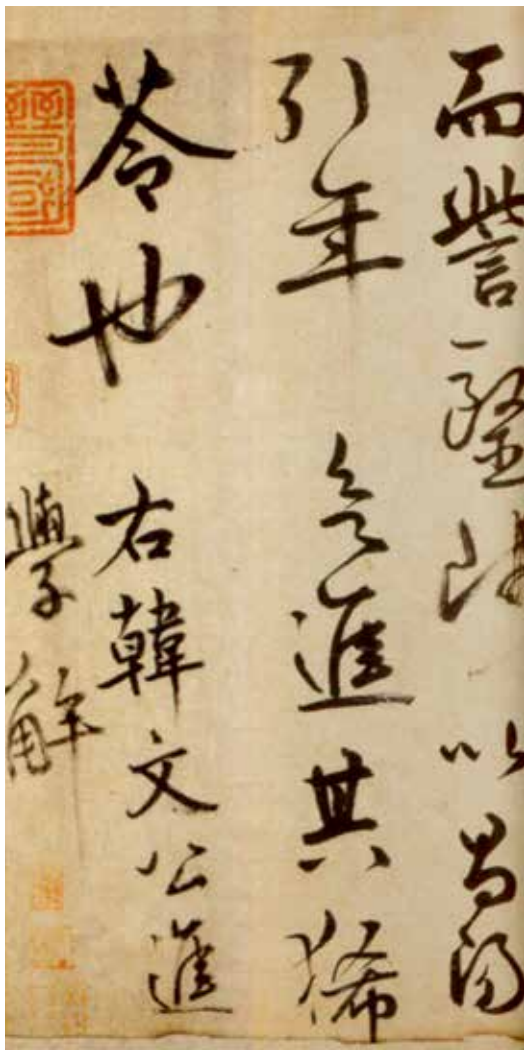 而訾醫師以昌陽
引年欲進其狶
苓也
右韓文公進
學解